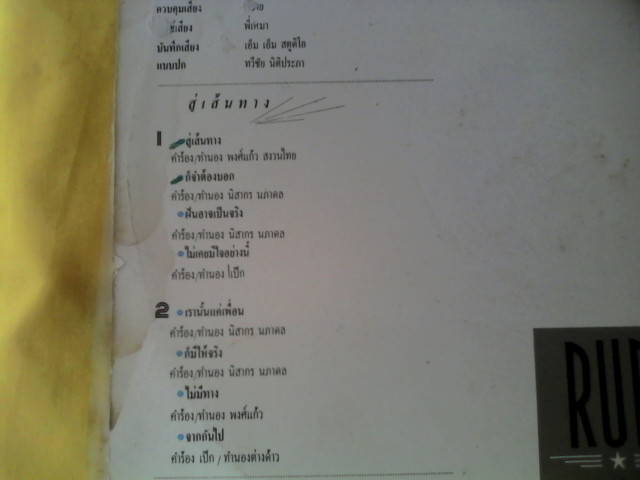 ควบคุมเสียง
พี่เหมา
บันทึกเสียง เอ็ม เอ็ม สตูดิโอ
แบบปก ทวีชัย นิติประภา
สู่เส้นทาง
1 สู่เส้นทาง
คำร้อง/ทำนอง พงศ์แก้ว สงวนไทย
ก็จำต้องบอก
คำร้อง/ทำนอง นิสากร นภาดล
ฝันอาจเป็นจริง
คำร้อง/ทำนอง นิสากร นภาดล
ไม่เคยมีใจอย่างนี้
คำร้อง/ทำนอง เป๊ก
2 เรานั้นแค่เพื่อน
คำร้อง/ทำนอง นิสากร นภาดล
ก็มีให้จริง
คำร้อง/ทำนอง นิสากร นภาดล
ไม่มีทาง
คำร้อง/ทำนอง พงศ์แก้ว
จากกันไป
คำร้อง เป๊ก / ทำนองต่างด้าว